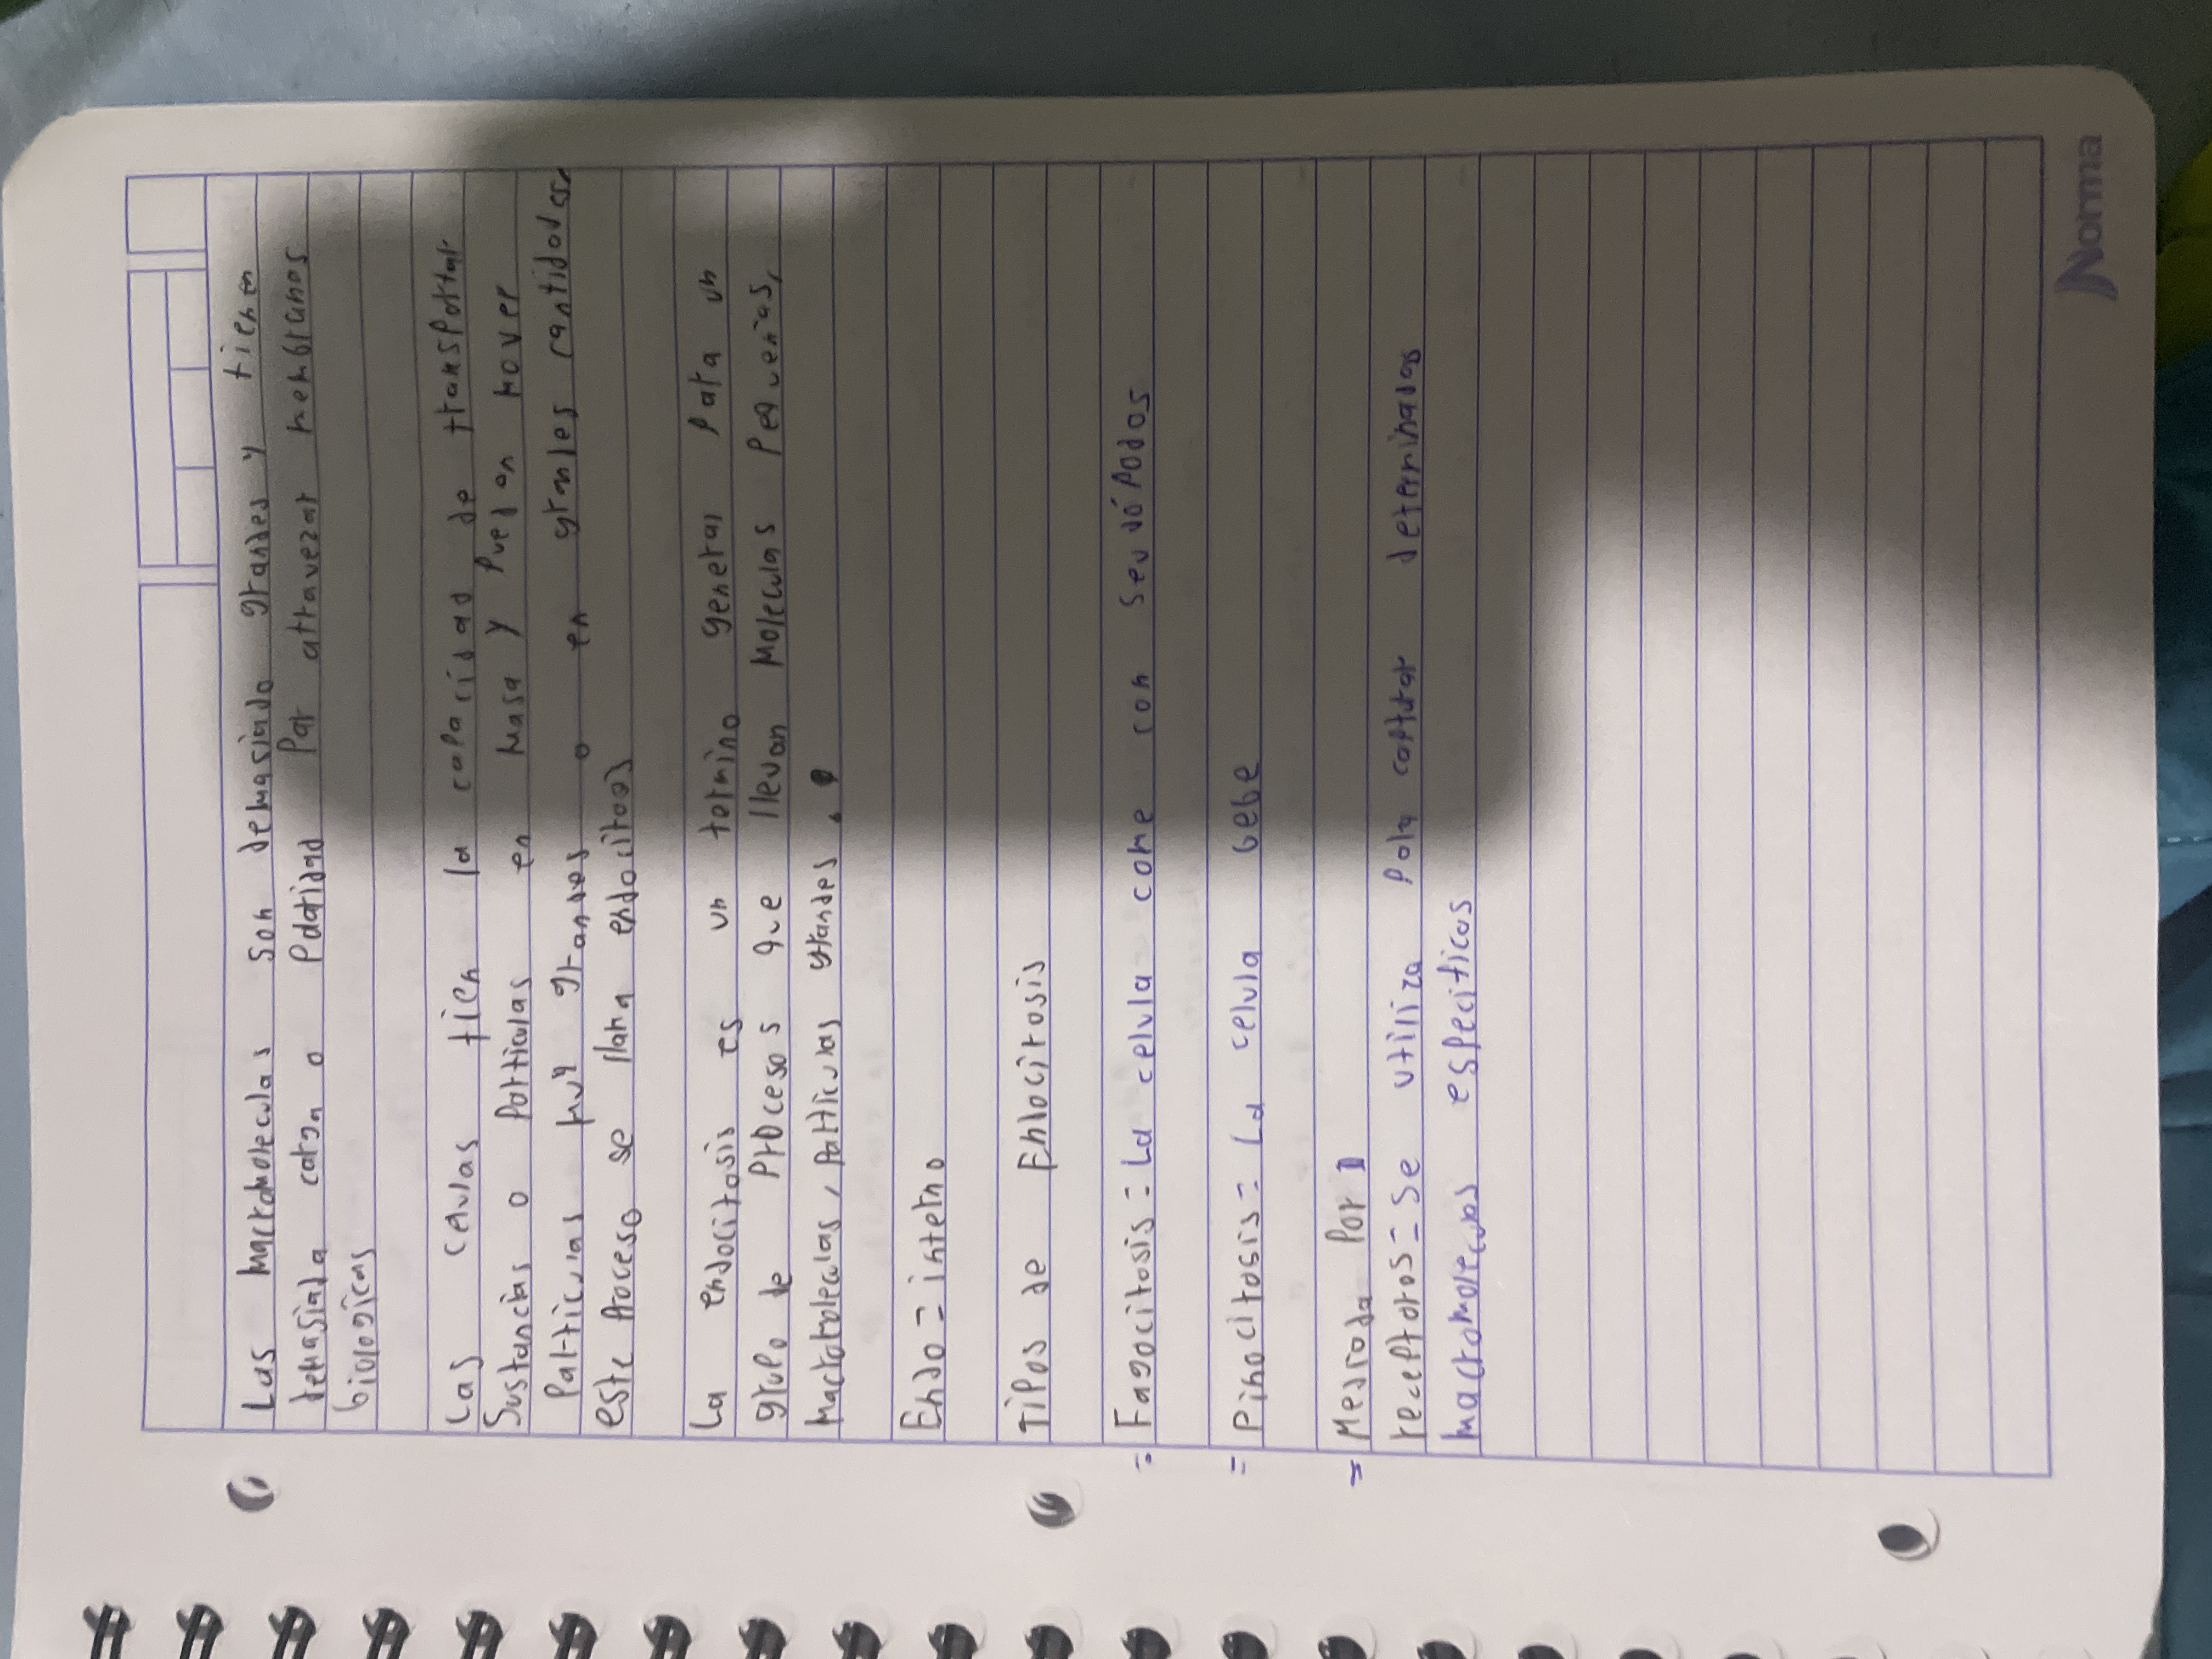 Las Macromoleculas son demasiado grandes y tienen
demasiada carga o Polatidad Par atravezar menbranas
biologicas
Las celulas tien la capacidad de transportar
Sustancias o Particulas en Masa y Pueden mover
Particulas muy grandes o en grandes cantidades
este Proceso se llama endocitosis
La endocitosis es un termino general Para un
grupo de Procesos que llevan Moleculas Pequeñas,
Macromoleculas, Particulas grandes.
Endo = interno
Tipos de Endocitosis
= Fagocitosis = La celula come con seudóPodos
= Pinocitosis = La celula bebe
= Mediada Por
receptores = Se utiliza Para captar determinadas
macromoleculas especificas
Norma